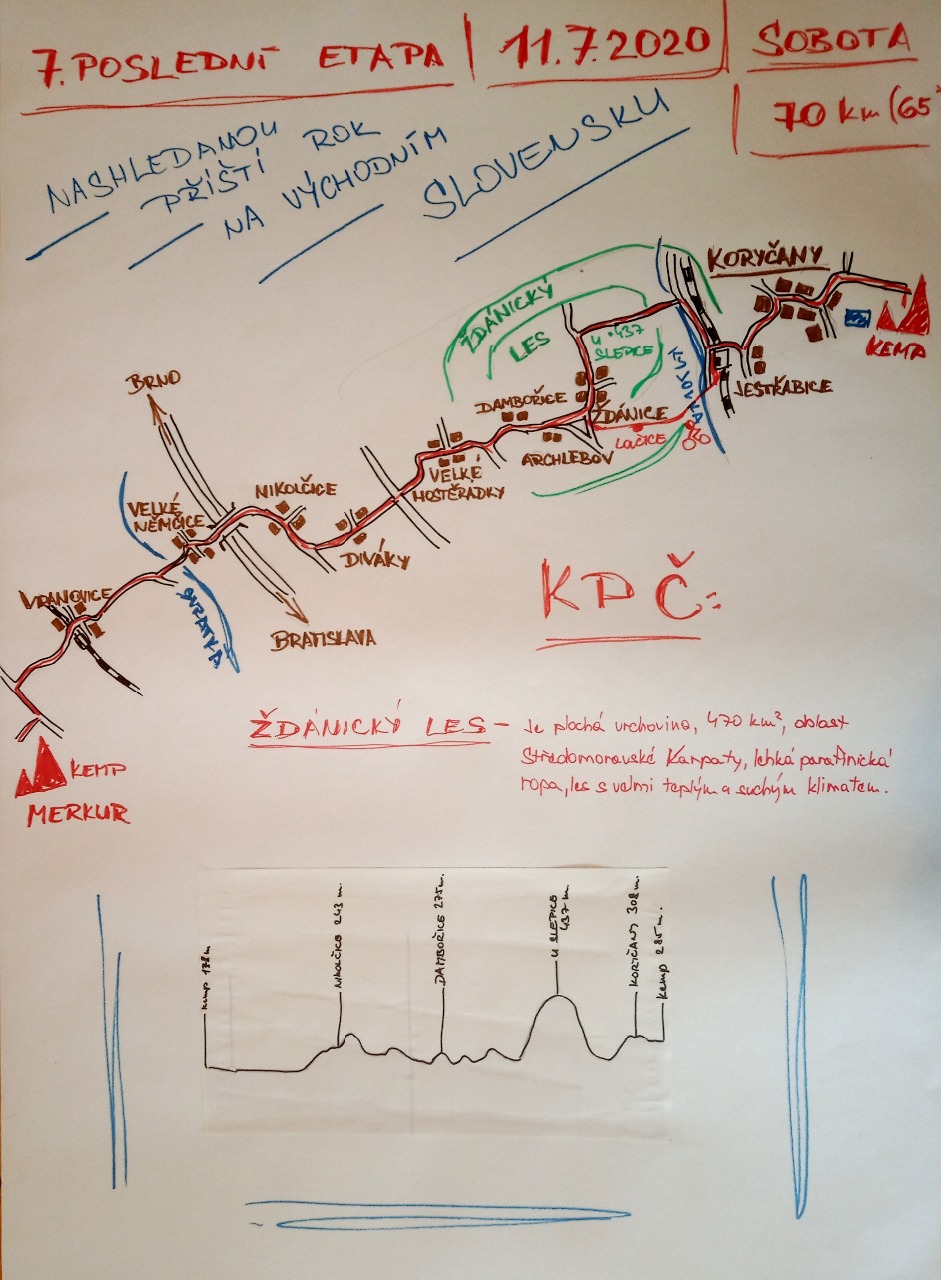 7. POSLEDNÍ ETAPA
11.7.2020
SOBOTA
70 km (65
NASHLEDANOU
PŘÍŠTÍ ROK
NA VÝCHODNÍM
SLOVENSKU
KORYČANY
KEMP
ŽDÁNICKÝ
LES
U 437
SLEPICE
KYJOVKA
JESTŘABICE
BRNO
DAMBOŘICE
ŽDÁNICE
LOČICE
ARCHLEBOV
VELKÉ
HOSTĚRÁDKY
NIKOLČICE
VELKÉ
NĚMČICE
DIVÁKY
VRANOVICE
SVRATKA
BRATISLAVA
KPČ:
ŽDÁNICKÝ LES - Je plochá vrchovina, 470 km², oblast
Středomoravské Karpaty, lehká parafinická
ropa, les s velmi teplým a suchým klimatem.
KEMP
MERKUR
kemp 178 m
NIKOLČICE 243 m.
DAMBOŘICE 275 m.
U SLEPICE
437 m
KORYČANY 308 m.
Kemp 285 m.